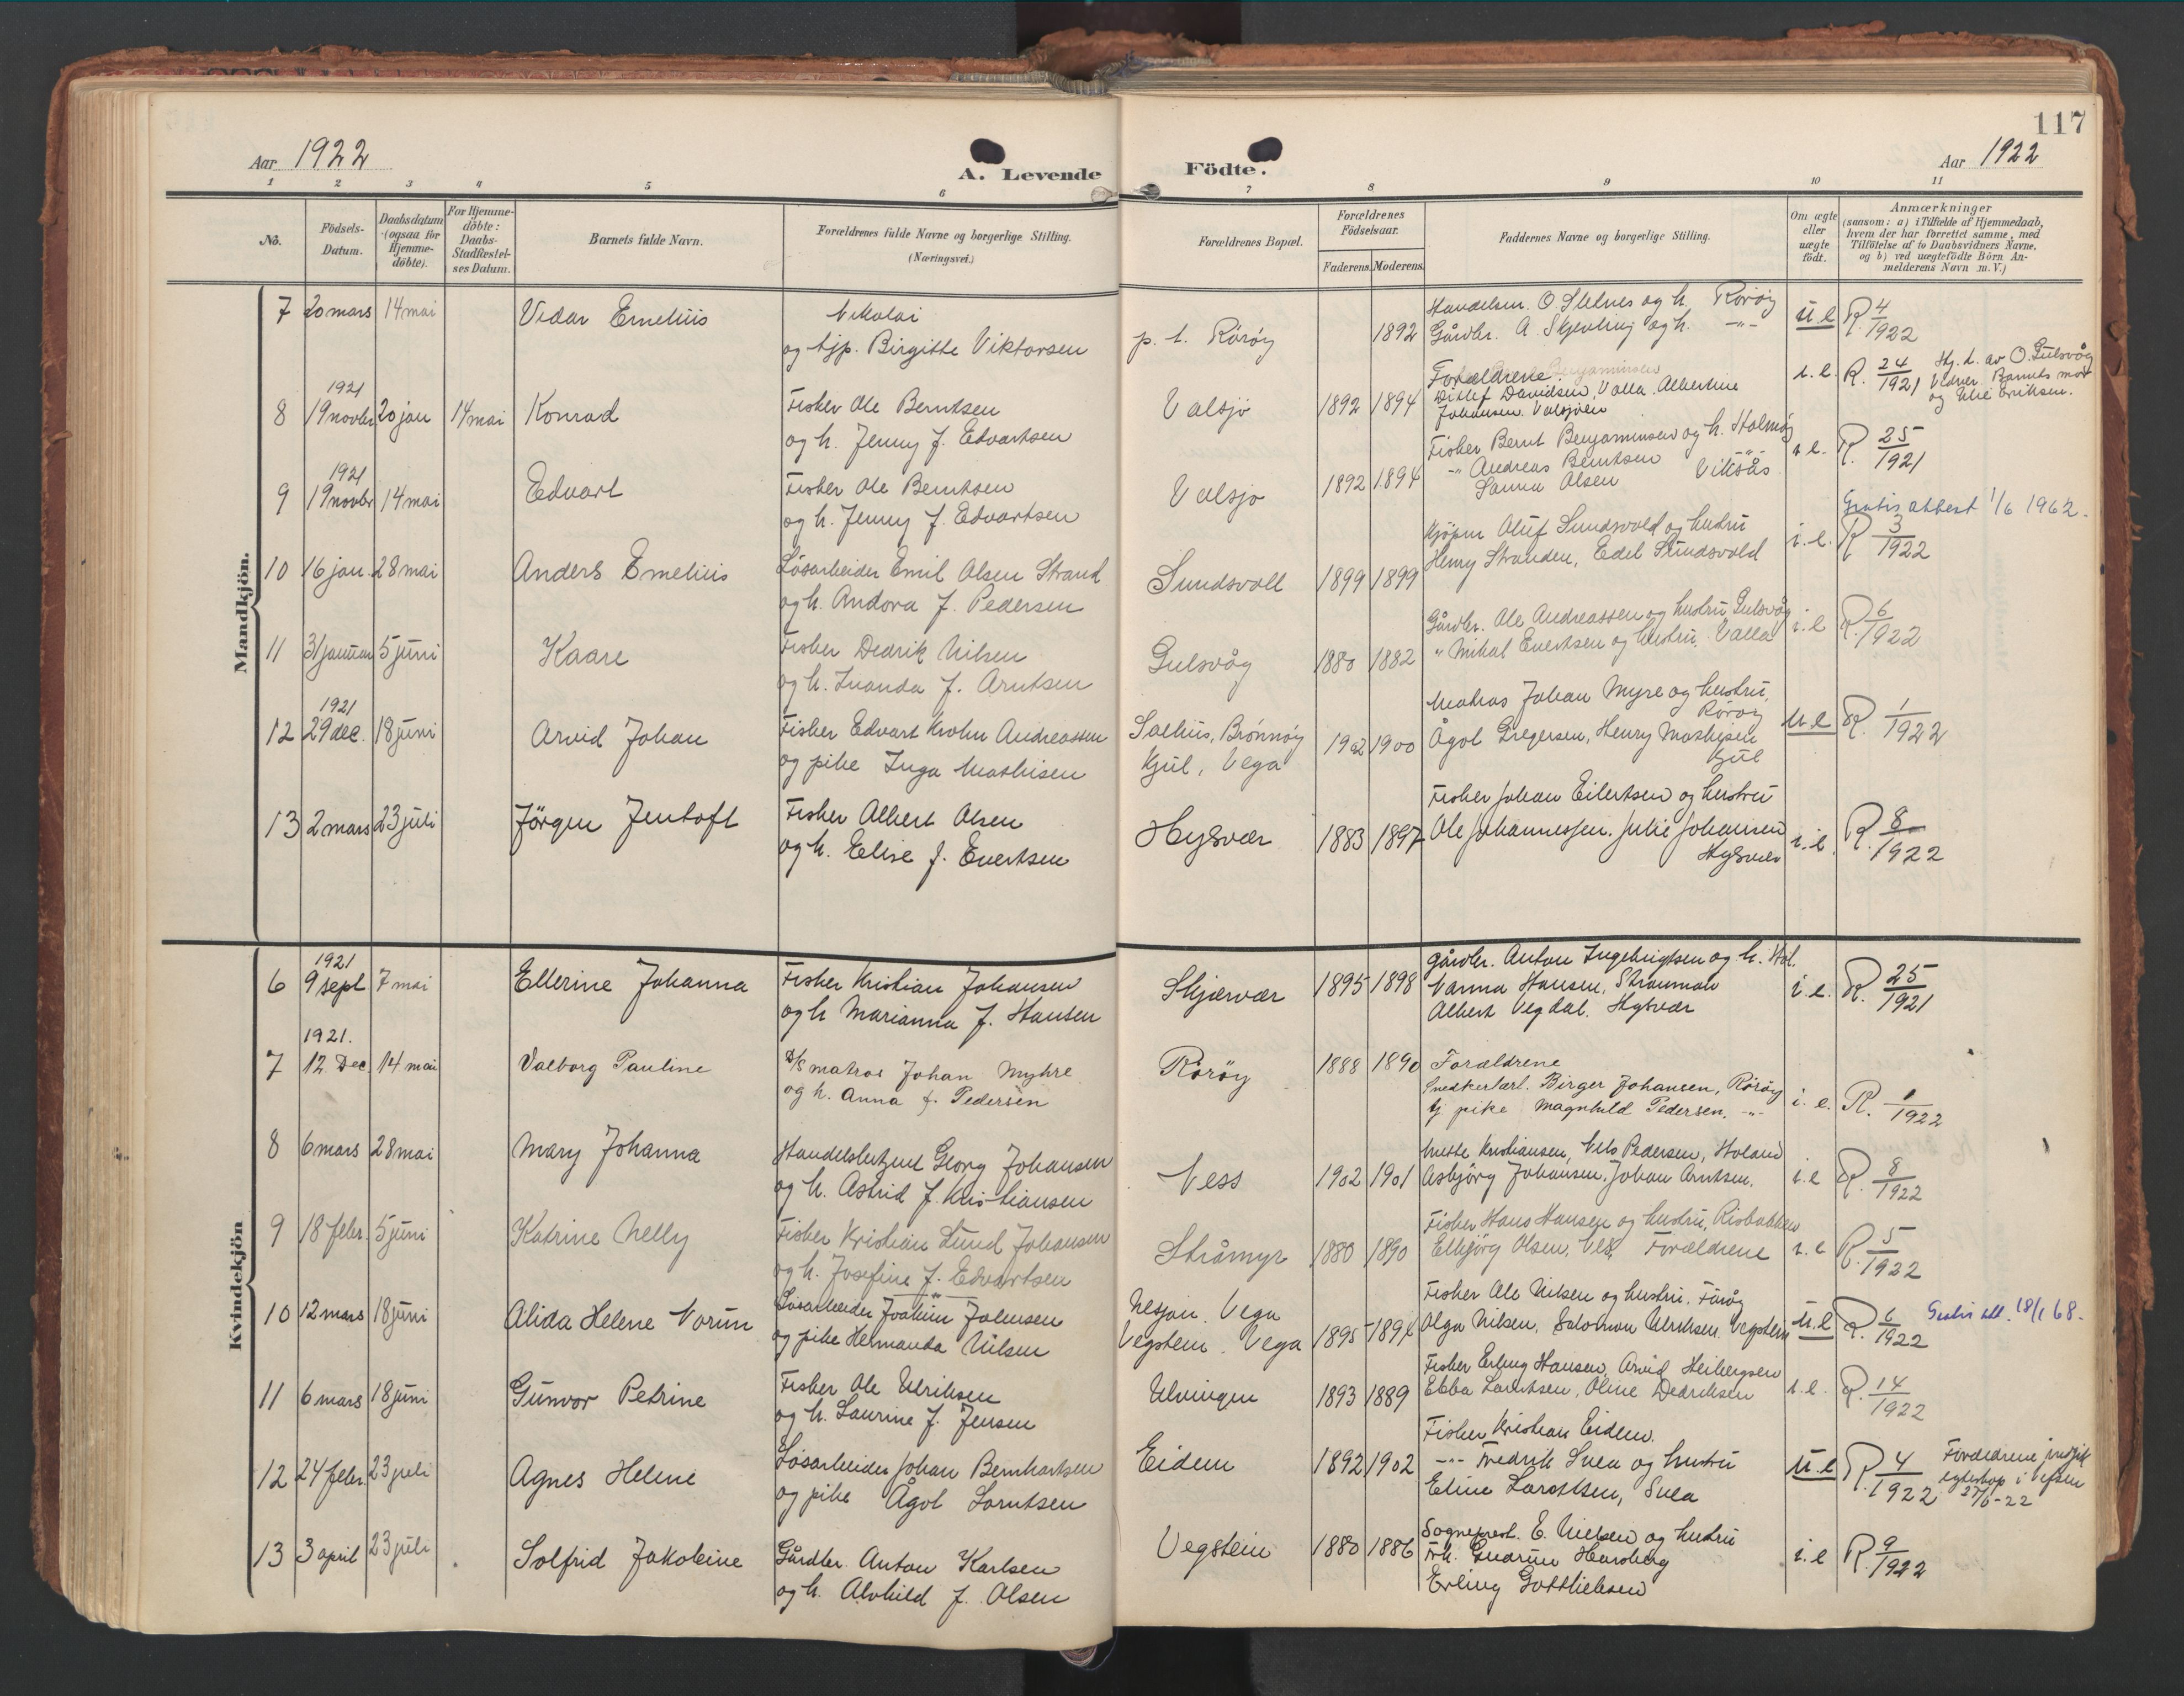 117
Aar 1922
A. Levende
Födte.
Aar 1922
1 2 3 4 5 6 7 8 9 10 11
No.
Födsels-
Datum.
Daabsdatum
(ogsaa for
Hjemme-
döbte).
For Hjemme-
döbte:
Daabs-
Stadfæstel-
ses Datum.
Barnets fulde Navn.
Forældrenes fulde Navne og borgerlige Stilling.
(Næringsvei.)
Forældrenes Bopæl.
Forældrenes
Födselsaar.
Faderens. Moderens.
Faddernes Navne og borgerlige Stilling.
Om ægte
eller
uægte
födt.
Anmærkninger
(saasom: a) i Tilfælde af Hjemmedaab,
hvem der har forrettet samme, med
Tilföielse af to Daabsvidners Navne,
og b) ved uægtefödte Börn An-
melderens Navn m. V.)
Mandkjön.
7 20 mars 14 mai Vidar Emelius
Nikolai
og tjp. Birgitte Viktorsen
p. t. Rörøy 1892
Handelsm. O. Sletnes og h. Rörøy
Gårdbr. A. Skjevling og h. -"-
u.e R. 4/1922
1921
8 19 novbr 20 jan 14 mai Konrad
Fisker Ole Berntsen
og h. Jenny f. Edvartsen
Valsjø 1892 1894
Forældrene
Ditlef Davidsen, Valla. Albertine
Johansen. Valsjøen
i.e. R. 24/1921 Hj. d. av O. Gulsvåg
Vidner. Barnets mor
og Elie Eriksen.
1921
9 19 novbr 14 mai Edvart
Fisker Ole Berntsen
og h. Jenny f. Edvartsen
Valsjø 1892 1894
Fisker Bernt Benjaminsen og h. Holmøy
-"- Andreas Berntsen -"-
Sanna Olsen Viksås
i.e. R. 25/1921
Gratis attest 1/6 1962.
10 16 jan. 28 mai Anders Emelius
Løsarbeider Emil Olsen Strand
og h. Andora f. Pedersen
Sundsvoll 1899 1899
Kjøpm Oluf Sundsvold og hustru
Henry Stranden, Edel Sundsvold
i.e. R 3/1922
11 31 januar 5 juni Kaare
Fisker Dedrik Nilsen
og h. Inanda f. Arntsen
Gulsvåg 1880 1882
Gårdbr. Ole Andreassen og hustru Gulsvåg
" Mikal Evertsen og hustru, Valla
i.e R. 6/1922
1921
12 29 dec. 18 juni Arvid Johan
Fisker Edvart Krohn Andreassen
og pike Inga Mathisen
Salhus, Brønnøy
Kjul, Vega
1902 1900
Matros Johan Myre og hustru,
Rörøy
Ågot Gregersen, Henry Mathisen
Kjul
u.e R. 1/1922
13 2 mars 23 juli Jörgen Jentoft
Fisker Albert Olsen
og h. Elise f. Evertsen
Hysvær 1883 1897
Fisker Johan Eilertsen og hustru
Ole Johannessen. Julie Johansen
Hysvær
i.e. R. 8/1922
Kvindekjön
1921
6 9 sept 7 mai Ellerine Johanna
Fisker Kristian Johansen
og h Marianna f. Hansen
Skjærvær 1895 1898
Gårdbr. Anton Ingebrigtsen og h. Hol.
Nanna Hansen, Straumen
Albert Vegdal. Hysvær
i.e. R. 25/1921
1921.
7 12 Dec. 14 mai Valborg Pauline
D/S matros Johan Myhre
og h. Anna f. Pedersen
Rörøy 1888 1890
Forældrene
Snedkerlærl. Birger Johansen, Rörøy
Tj. pike Magnhild Pedersen. -"-
i.e. R. 1/1922
8 6 mars 28 mai Mary Johanna
Handelsbetjent Georg Johansen
og h. Astrid f. Kristiansen
Vess 1902 1901
Mette Kristiansen, Nils Pedersen, Holand
Asbjörg Johansen. Johan Arntsen.
i.e R. 8/1922
9 18 febr. 5 juni Katrine Nelly
Fisker Kristian Lund Johansen
og h. Josefine f. Edvartsen
Stråmyr 1880 1890
Fisker Hans Hansen og hustru, Risbakken
Elbjörg Olsen, Nes. Forældrene
i.e R. 5/1922
10 12 mars 18 juni Alida Helene Norun
Løsarbeider Joakim Johnsen
og pike Hermanda Nilsen
Nesjan. Vega
Vegstein. Vega
1895 1894
Fisker Ole Nilsen og hustru. Fårøy
Olga Nilsen, Salomon Ulriksen. Vegstein
u.e R. 6/1922 Gratis att. 18/1 68.
11 6 mars 18 juni Gunvor Petrine
Fisker Ole Ulriksen
og h. Laurine f. Jensen
Ulvingen 1893 1889
Fisker Erling Hansen, Arvid Heibergsen
Ebba Lorentsen, Oline Dedriksen
i.e. R. 14/1922
12 24 febr. 23 juli Agnes Helene
Løsarbeider Johan Bernhartsen
og pike Ågot Lorntsen
Eidem 1892 1902
Fisker Kristian Eidem.
-"- Fredrik Svea og hustru
Eline Lorntsen, Svea
u.e R. 4/1922 Forældrene indgik
egteskap i Vefsen
27/6-22
13 3 april 23 juli Solfrid Jakobine
Gårdbr. Anton Karlsen
og h. Alvhild f. Olsen
Vegstein 1880 1886
Sogneprest. E. Nielsen og hustru
Frk. Gudrun Hansberg
Erling Gottliebsen
i.e R. 9/1922